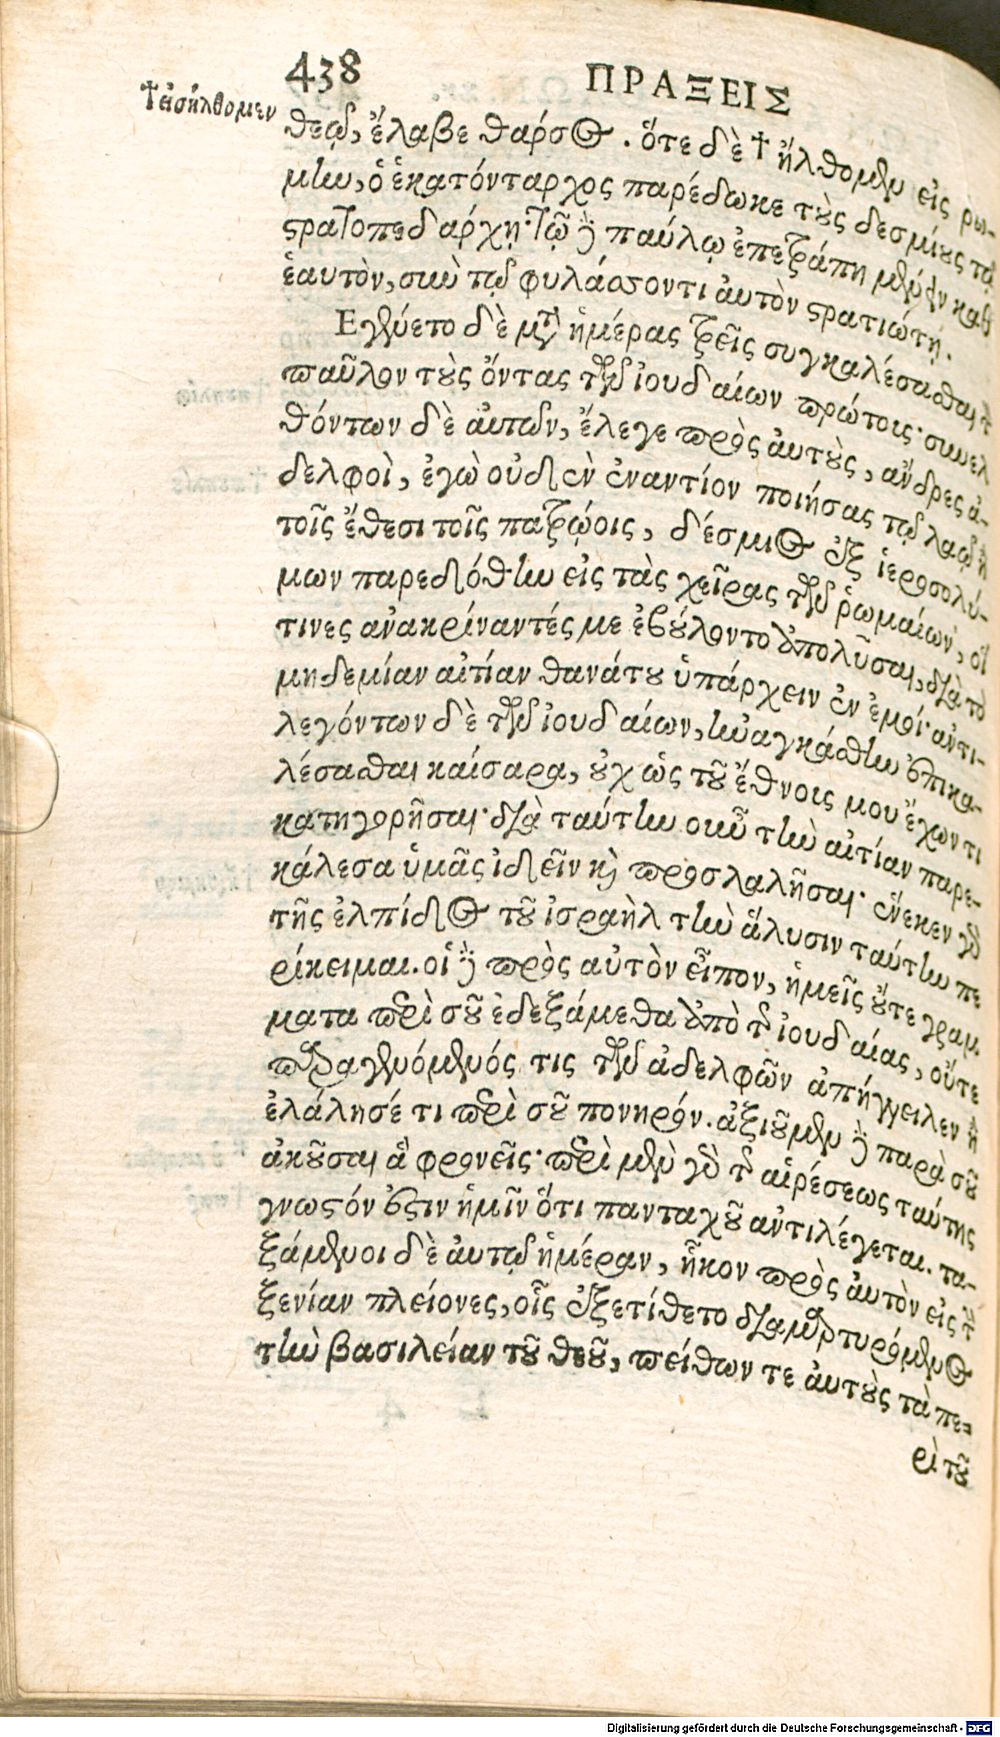 438
ΠΡΑΞΕΙΣ
† εἰσήλθομεν
θεῷ, ἔλαβε θάρσος. ὅτε δὲ † ἤλθομεν εἰς ρώ-
μην, ὁ ἑκατόνταρχος παρέδωκε τοὺς δεσμίους τῷ
στρατοπεδάρχῃ· τῷ δὲ παύλῳ ἐπετράπη μένειν καθ
ἑαυτὸν, σὺν τῷ φυλάσσοντι ἀυτὸν στρατιώτῃ.
Εγένετο δὲ μετὰ ἡμέρας τρεῖς συγκαλέσασθαι τὸν
παῦλον τοὺς ὄντας τῶν ἰουδαίων πρώτοις· συνελ
θόντων δὲ ἀυτῶν, ἔλεγε πρὸς ἀυτοὺς, ἄνδρες ἀ-
δελφοὶ, ἐγὼ οὐδὲν ἐναντίον ποιήσας τῷ λαῷ ἢ
τοῖς ἔθεσι τοῖς πατρῴοις, δέσμιος ἐξ ἱεροσολύ-
μων παρεδόθην εἰς τὰς χεῖρας τῶν ῥωμαίων, οἵ
τινες ἀνακρίναντές με ἐβούλοντο ἀπολῦσαι, διὰ τὸ
μηδεμίαν αἰτίαν θανάτου ὑπάρχειν ἐν ἐμοί· ἀντι-
λεγόντων δὲ τῶν ἰουδαίων, ἠναγκάσθην ἐπικα-
λέσασθαι καίσαρα, οὐχ ὡς τοῦ ἔθνοις μου ἔχων τι
κατηγορῆσαι· διὰ ταύτην οὖν τὴν αἰτίαν παρε-
κάλεσα ὑμᾶς ἰδεῖν καὶ προσλαλῆσαι· ἕνεκεν γὰρ
τῆς ἐλπίδος τοῦ ἰσραὴλ τὴν ἅλυσιν ταύτην πε
ρίκειμαι. οἱ δὲ πρὸς αὐτὸν εἶπον, ἡμεῖς οὔτε γραμ-
ματα περὶ σοῦ ἐδεξάμεθα ἀπὸ τῆς ἰουδαίας, οὔτε
παραγενόμενός τις τῶν ἀδελφῶν ἀπήγγειλεν ἢ
ἐλάλησέ τι περὶ σοῦ πονηρόν. ἀξιοῦμεν δὲ παρὰ σοῦ
ἀκοῦσαι ἃ φρονεῖς· περὶ μὲν γὰρ τῆς αἱρέσεως ταύτης
γνωστόν ἐστιν ἡμῖν ὅτι πανταχοῦ ἀντιλέγεται. τα-
ξάμενοι δὲ ἀυτῷ ἡμέραν, ἧκον πρὸς ἀυτὸν εἰς τὴν
ξενίαν πλείονες, οἷς ἐξετίθετο διαμαρτυρόμενος
τὴν βασιλείαν τοῦ θεοῦ, πείθων τε ἀυτοὺς τὰ πε-
ρὶ τοῦ
Digitalisierung gefördert durch die Deutsche Forschungsgemeinschaft - DFG